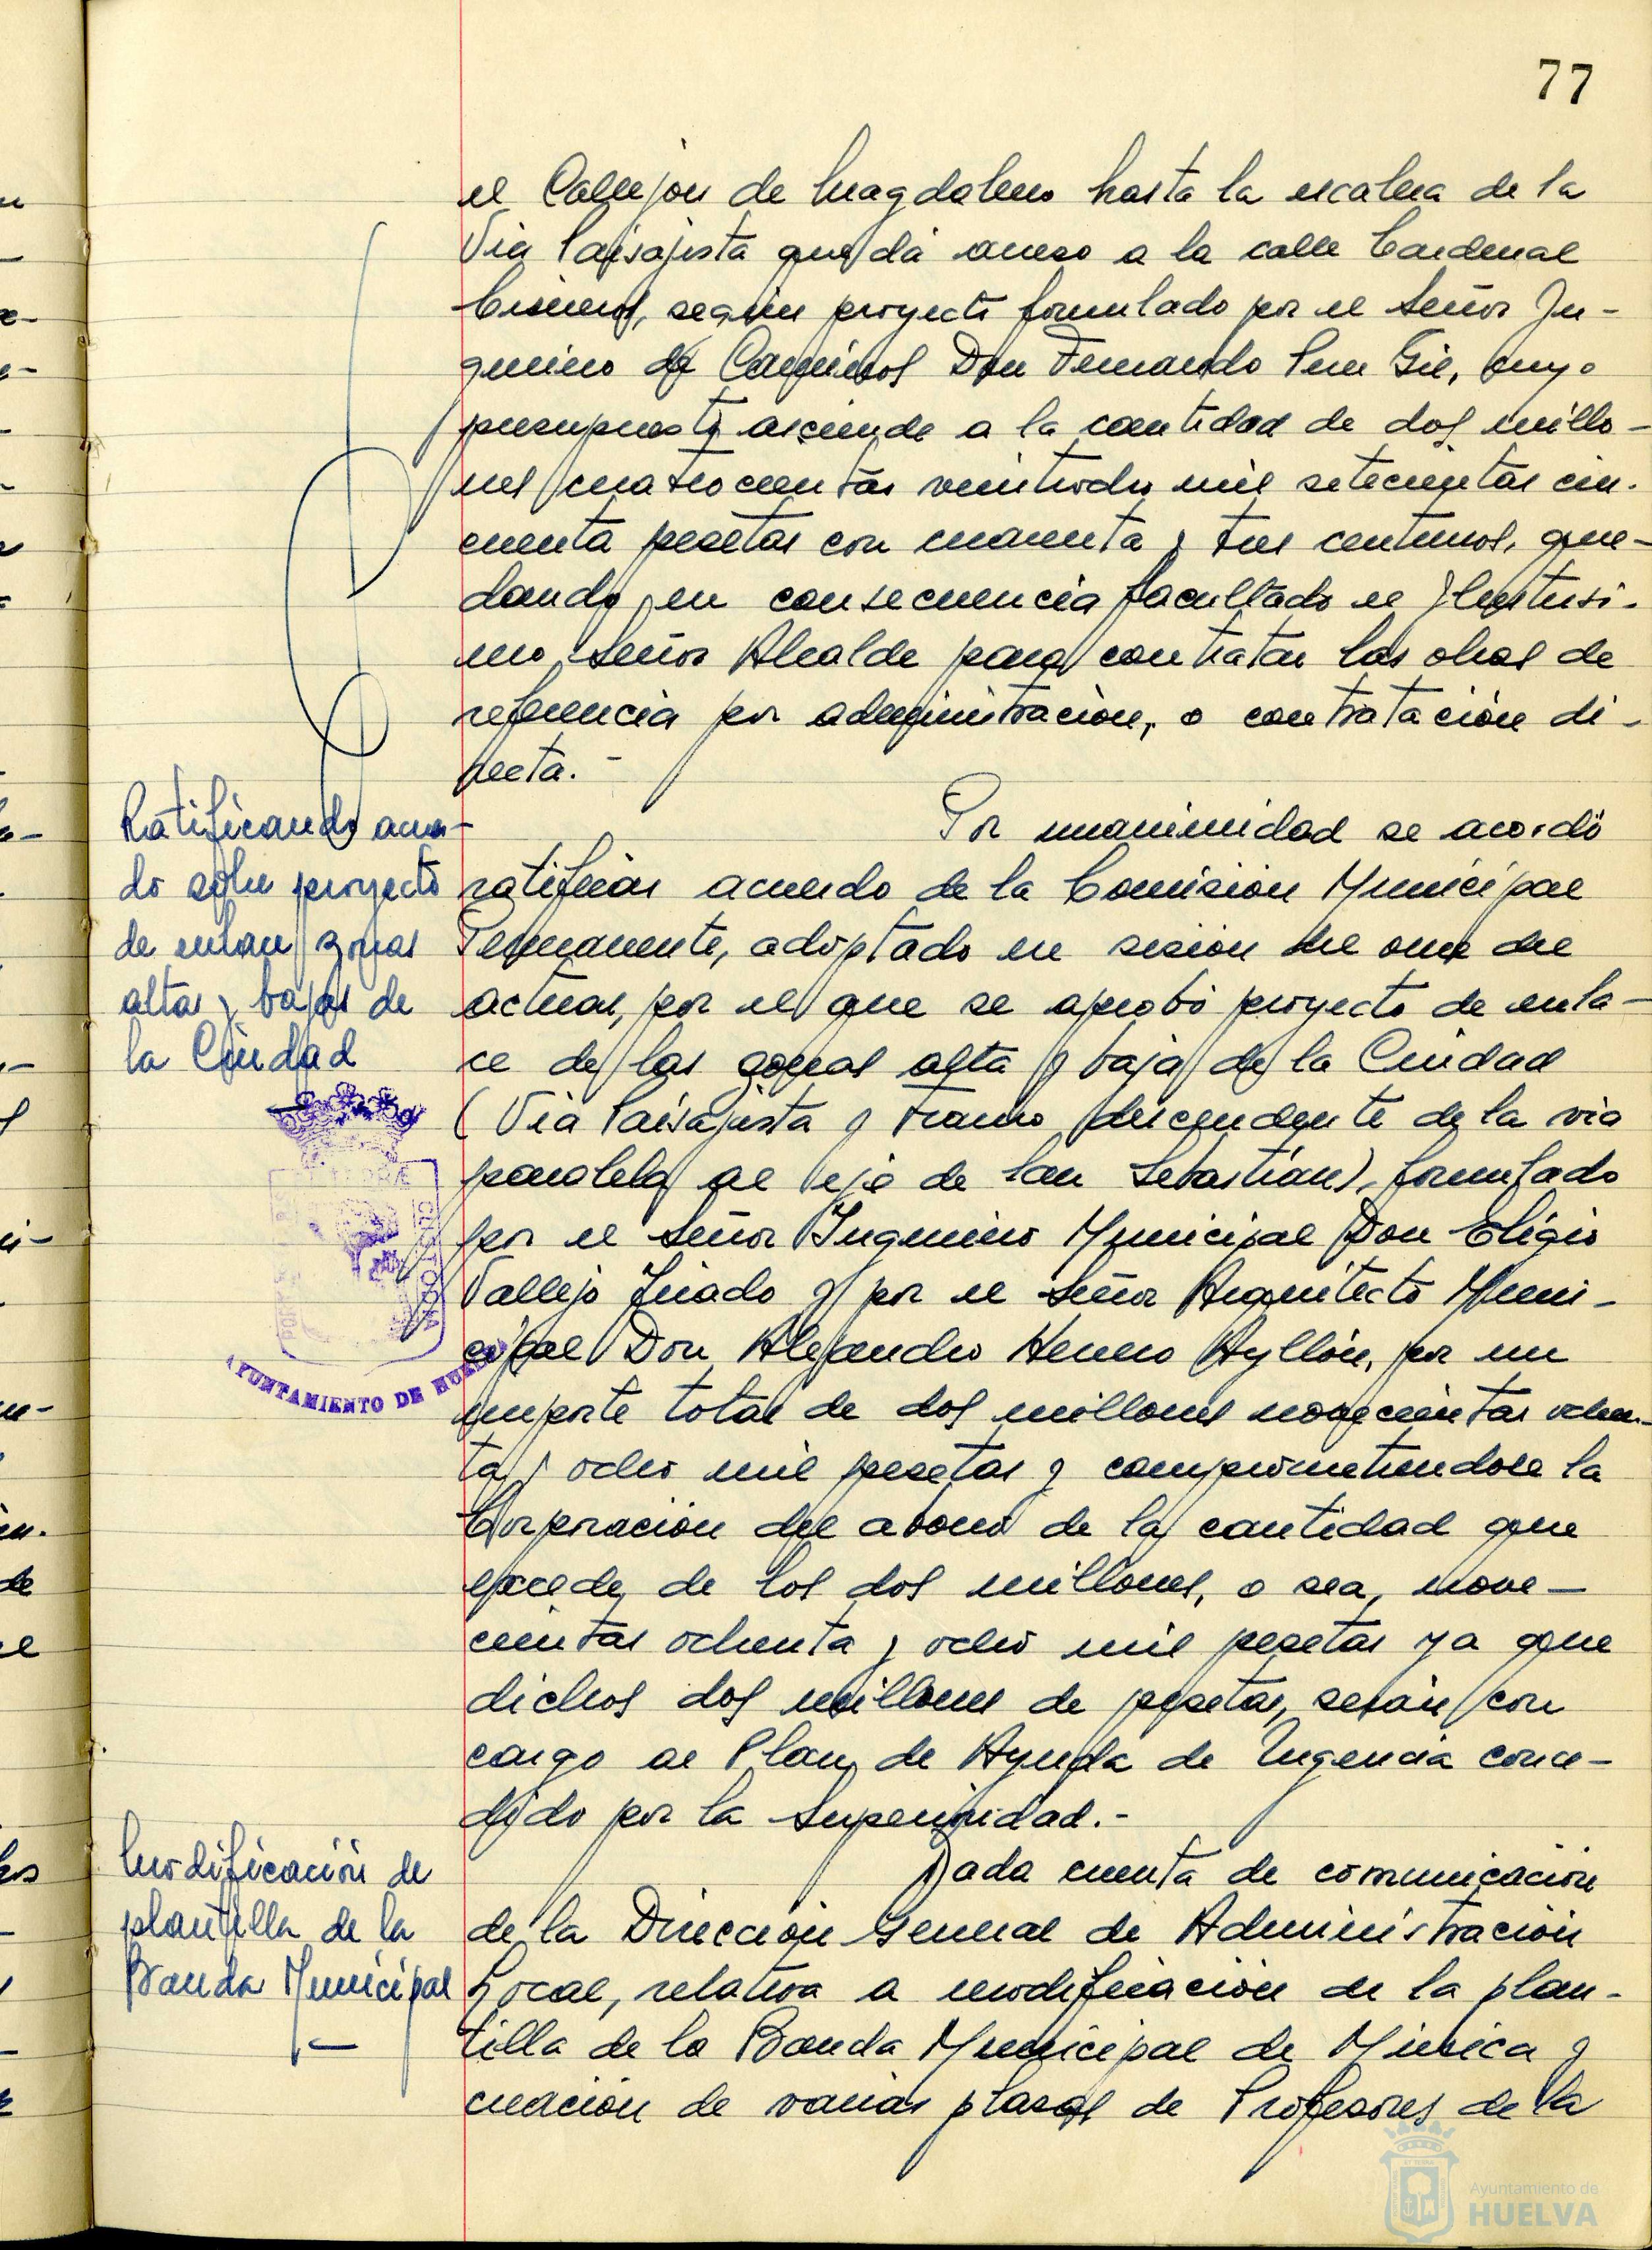 77
el Callejón de Magdaleno hasta la escalera de la
Vía Paisajista que dá acceso a la calle Cardenal
Cisneros, según proyecto formulado por el Señor In-
geniero de Caminos Don Fernando Gil, cuyo
presupuesto asciende a la cantidad de dos millo-
nes cuatrocientas veintiodos mil setecientas cin-
cuenta pesetas con cuarenta y tres centimos, que-
dando, en consecuencia facultado el Ilustrisi-
mo, Señor Alcalde para contratar las obras de
referencia por administración, o contratación di-
recta.-
Ratificando acuer-
do sobre proyecto
de enlace zonas
altas y bajas de
la Ciudad
Por unanimidad se acordó
ratificar acuerdo de la Comisión Municipal
Permanente, adoptado en sesión del once del
actual, por el que se aprobó proyecto de enla-
ce de las zonas alta y baja de la Ciudad
(Vía Paisajista y tramo descendente de la vía
paralela al eje de San Sebastián), formulado
por el Señor Ingeniero Municipal Don Eligio
Vallejo y por el Señor Arquitecto Muni-
cipal Don Alejandro Herrero Ayllón, por un
importe total de dos millones novecientas ochen-
ta y ocho mil pesetas y comprometiendose la
Corporación del abono de la cantidad que
excede de los dos millones, o sea, nove-
cientas ochenta y ocho mil pesetas ya que
dichos dos millones de pesetas, serán con
cargo al Plan de Ayuda de Urgencia conce-
dido por la Superioridad.-
AYUNTAMIENTO DE HUELVA
PORTUS MARIS ET TERRÆ CUSTODIA
Modificación de
plantilla de la
Banda Municipal
Dada cuenta de comunicación
de la Dirección General de Administración
Local, relativa a modificación de la plan-
tilla de la Banda Municipal de Música y
creación de varias plazas de Profesores de la
Ayuntamiento de
HUELVA